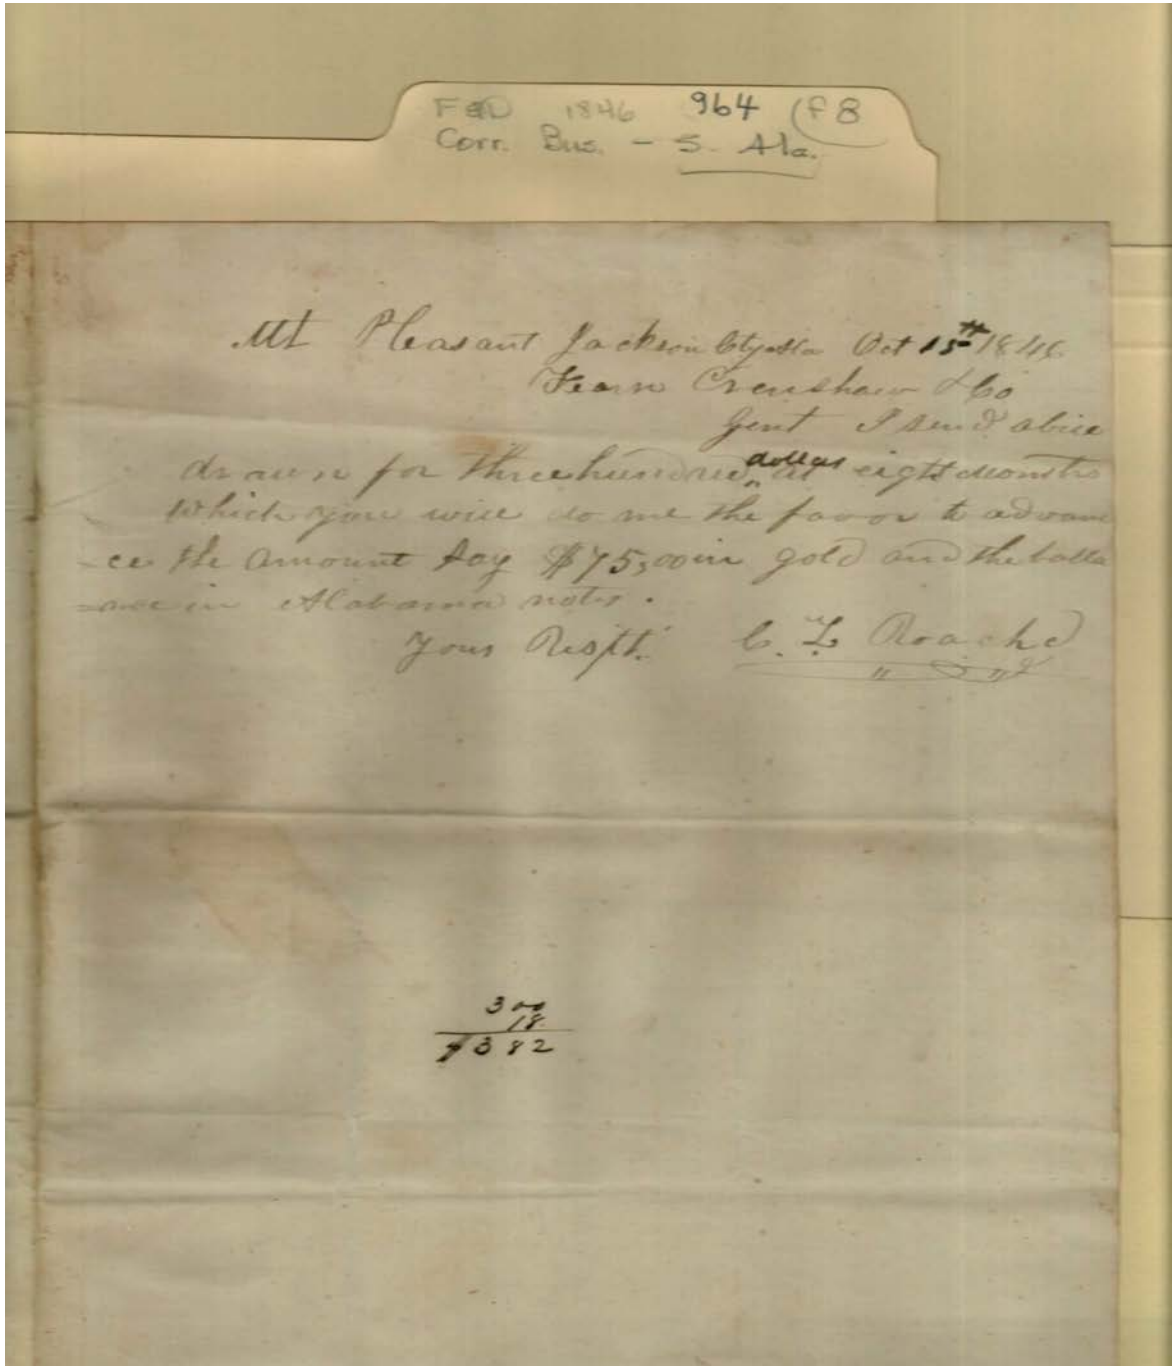 F&D 1846 964 (F8
Corr. Bus. - S. Ala.
Mt Pleasant Jackson Cty Ala Oct 15th 1846
Fearn Crenshaw & Co
Gent I send a bice
drawn for three hundred dollars at eight months
which you will do me the favor to advan
-ce the amount say $75,00 in gold and the balla
=nce in Alabama notes.
Yours Respt. C. L. Roache
300
18
7382